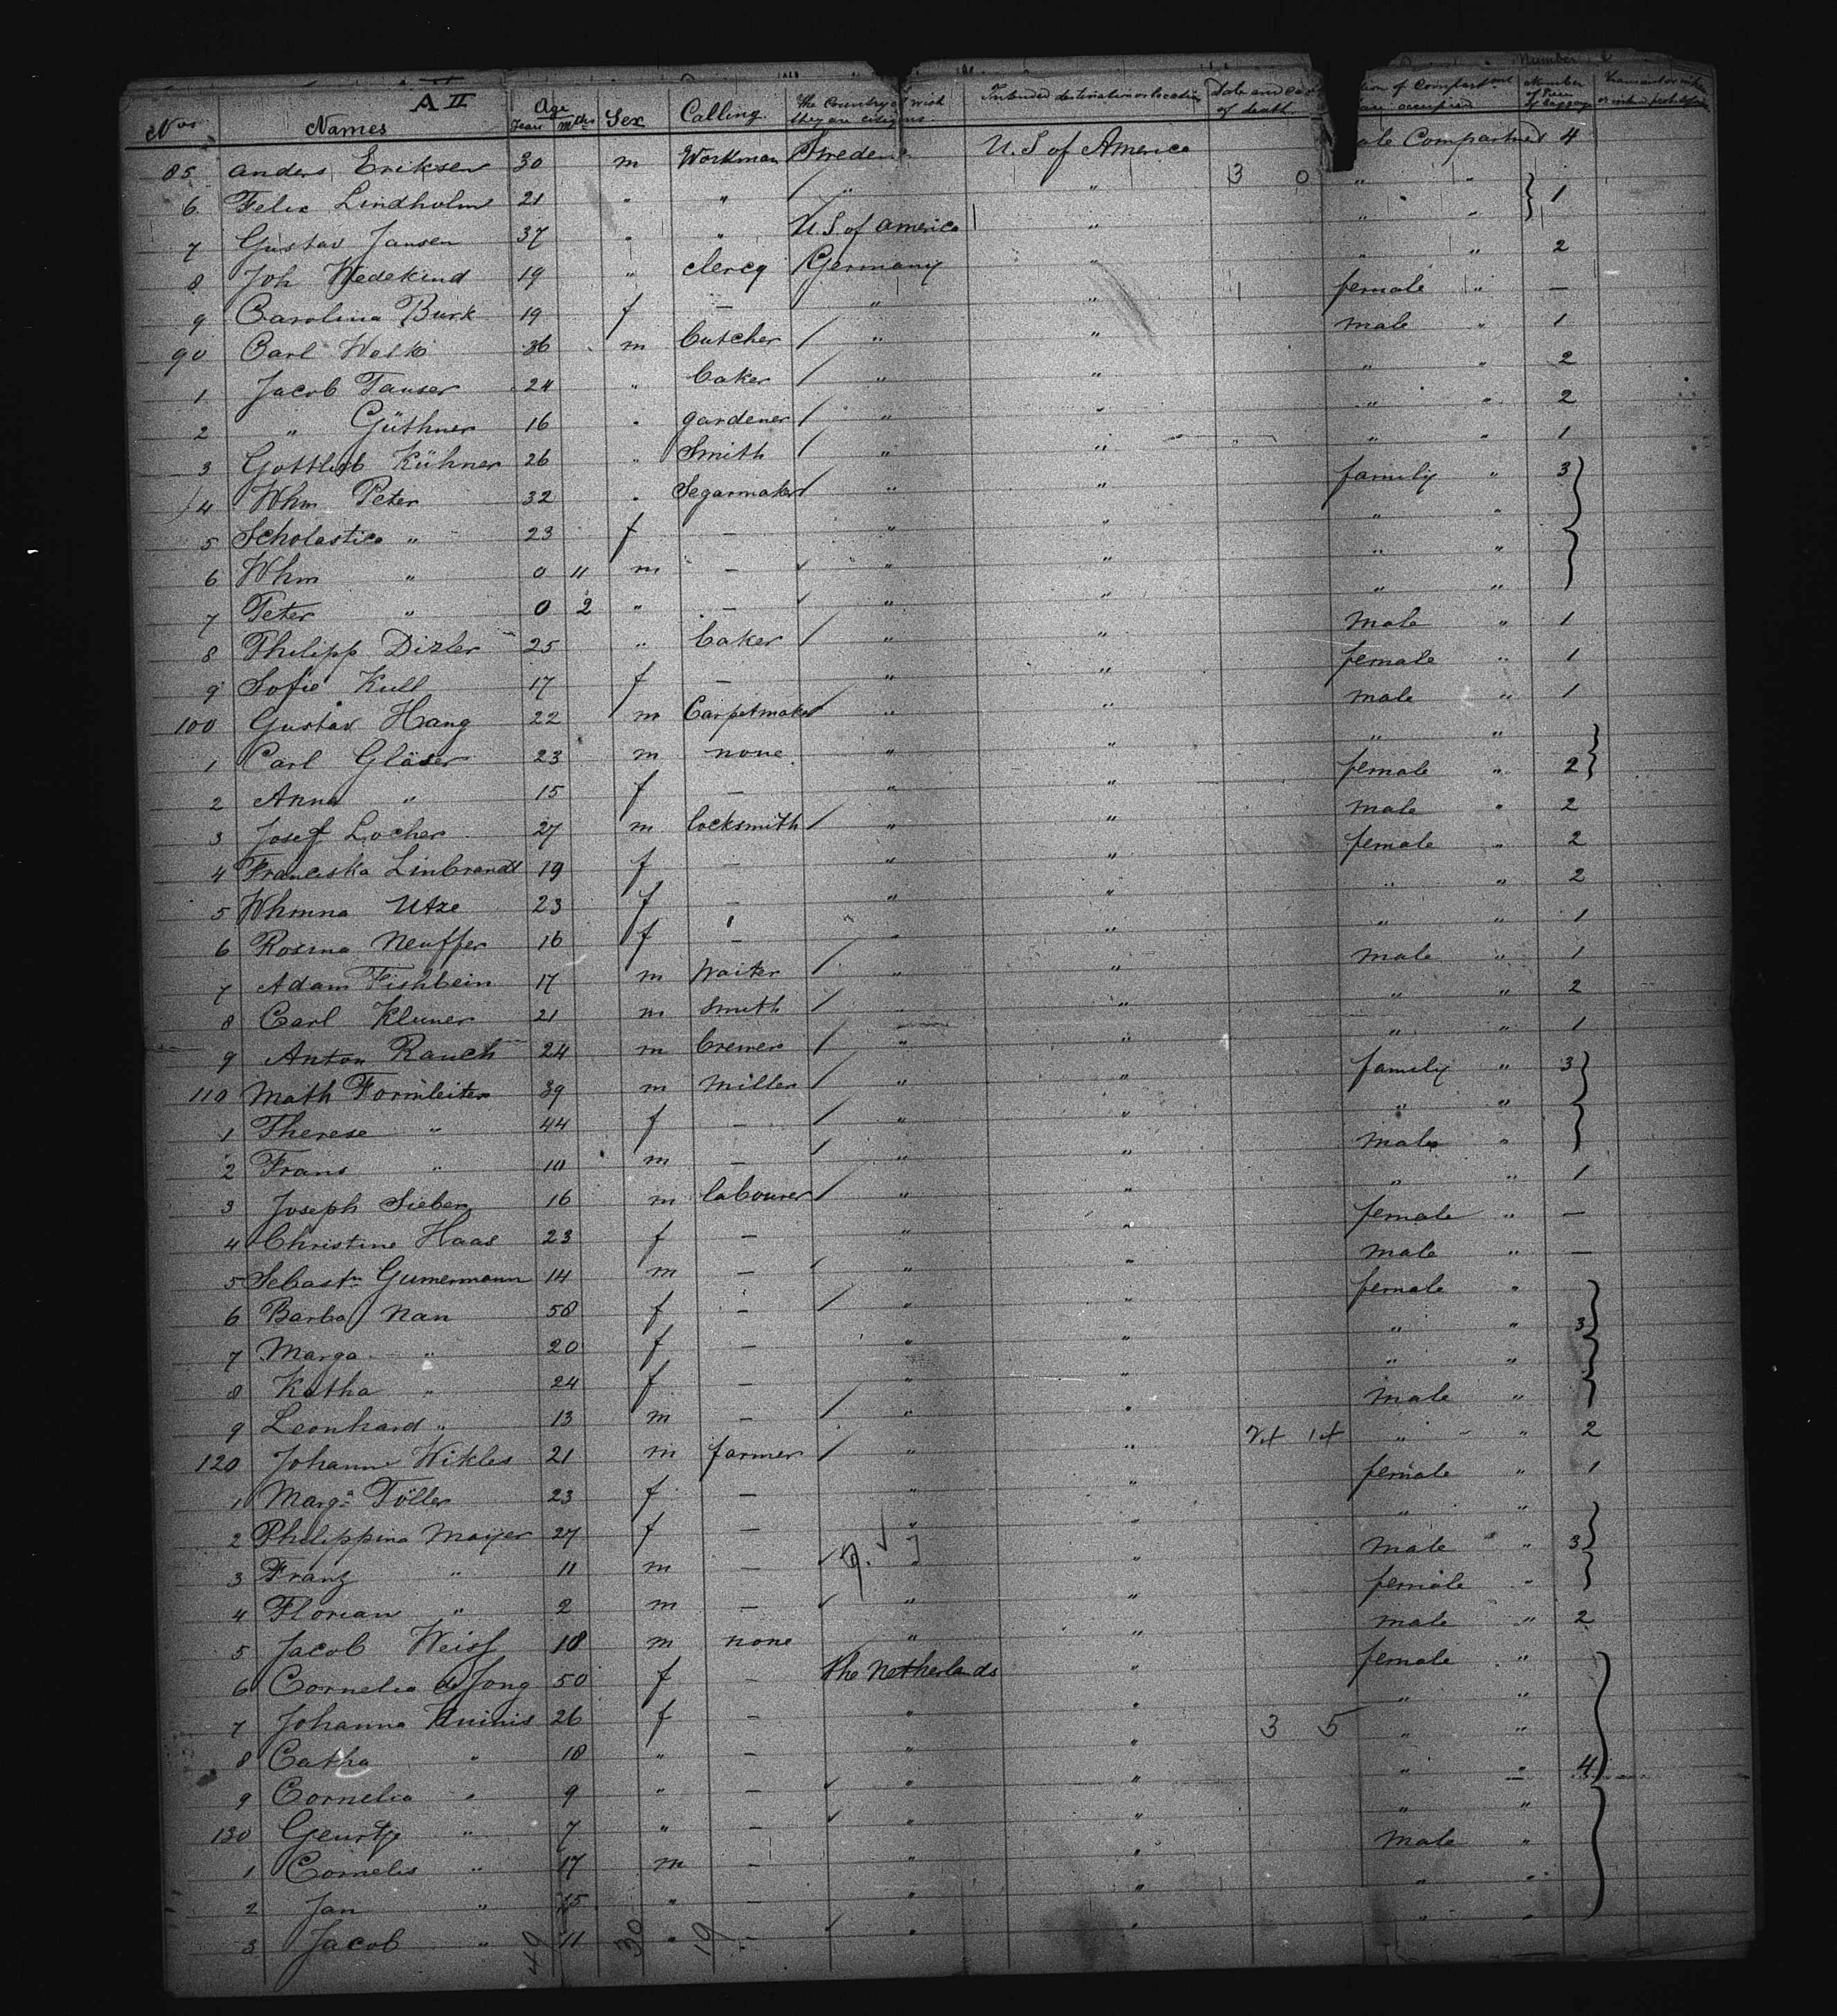 A II
Nos Names Age Years Mths Sex Calling. The Country of wich they are citizens. Intended destination or location Date and of death. of Compartment occupied Number of baggage
85 Anders Eriksen 30 m Workman Sweden U. S of America Compartment 4
6 Felix Lindholm 21 " " " " " " 1
7 Gustav Jansen 37 " " U. S of America " " "
8 Joh Wedekind 19 " clercq Germany " " " 2
9 Carolina Burk 19 f — " " female " —
90 Carl Welk 36 m butcher " " male " 1
1 Jacob Tauser 24 " baker " " " " 2
2 " Güthner 16 " gardener " " " " 2
3 Gottlieb Kühner 26 " Smith " " " " 1
4 Whm Peter 32 " Segarmaker " " family " 3
5 Scholastica " 23 f — " " " "
6 Whm " 0 11 m — " " " "
7 Peter " 0 2 " — " " " "
8 Philipp Dizler 25 " baker " " male " 1
9 Sofie Kull 17 f — " " female " 1
100 Gustav Hang 22 m Carpetmaker " " male " 1
1 Carl Gläser 23 m none " " " "
2 Anna " 15 f — " " female " 2
3 Josef Locher 27 m locksmith " " male " 2
4 Franciska Linbrandt 19 f — " " female " 2
5 Whmna Utze 23 f — " " " " 2
6 Rosina Neuffer 16 f — " " " " 1
7 Adam Fishbein 17 m waiter " " male " 1
8 Carl Kluner 21 m smith " " " " 2
9 Anton Rauch 24 m brewer " " " " 1
110 Math Formleiter 39 m miller " " family " 3
1 Therese " 44 f — " " " "
2 Frans " 10 m — " " male "
3 Joseph Sieber 16 m labourer " " " " 1
4 Christine Haas 23 f — " " female " —
5 Sebastn Gumermann 14 m — " " male " —
6 Barba Nan 58 f — " " female "
7 Marga " 20 f — " " " " 3
8 Katha " 24 f — " " " "
9 Leonhard " 13 m — " " male "
120 Johann Wikles 21 m farmer " " " " 2
1 Marga Töller 23 f — " " female " 1
2 Philippina Mayer 27 f — " " " "
3 Franz " 11 m — " " male " 3
4 Florian " 2 m — " " female "
5 Jacob Weiss 18 m none " " male " 2
6 Cornelia de Jong 50 f — The Netherlands " female "
7 Johanna Kuinis 26 f — " " 3 5 " "
8 Catha " 18 " — " " " "
9 Cornelia " 9 " — " " " " 4
130 Geurtje " 7 " — " " " "
1 Cornelis " 17 m — " " male "
2 Jan " 15 " — " " " "
3 Jacob " 11 " — " " " "
49 30 19